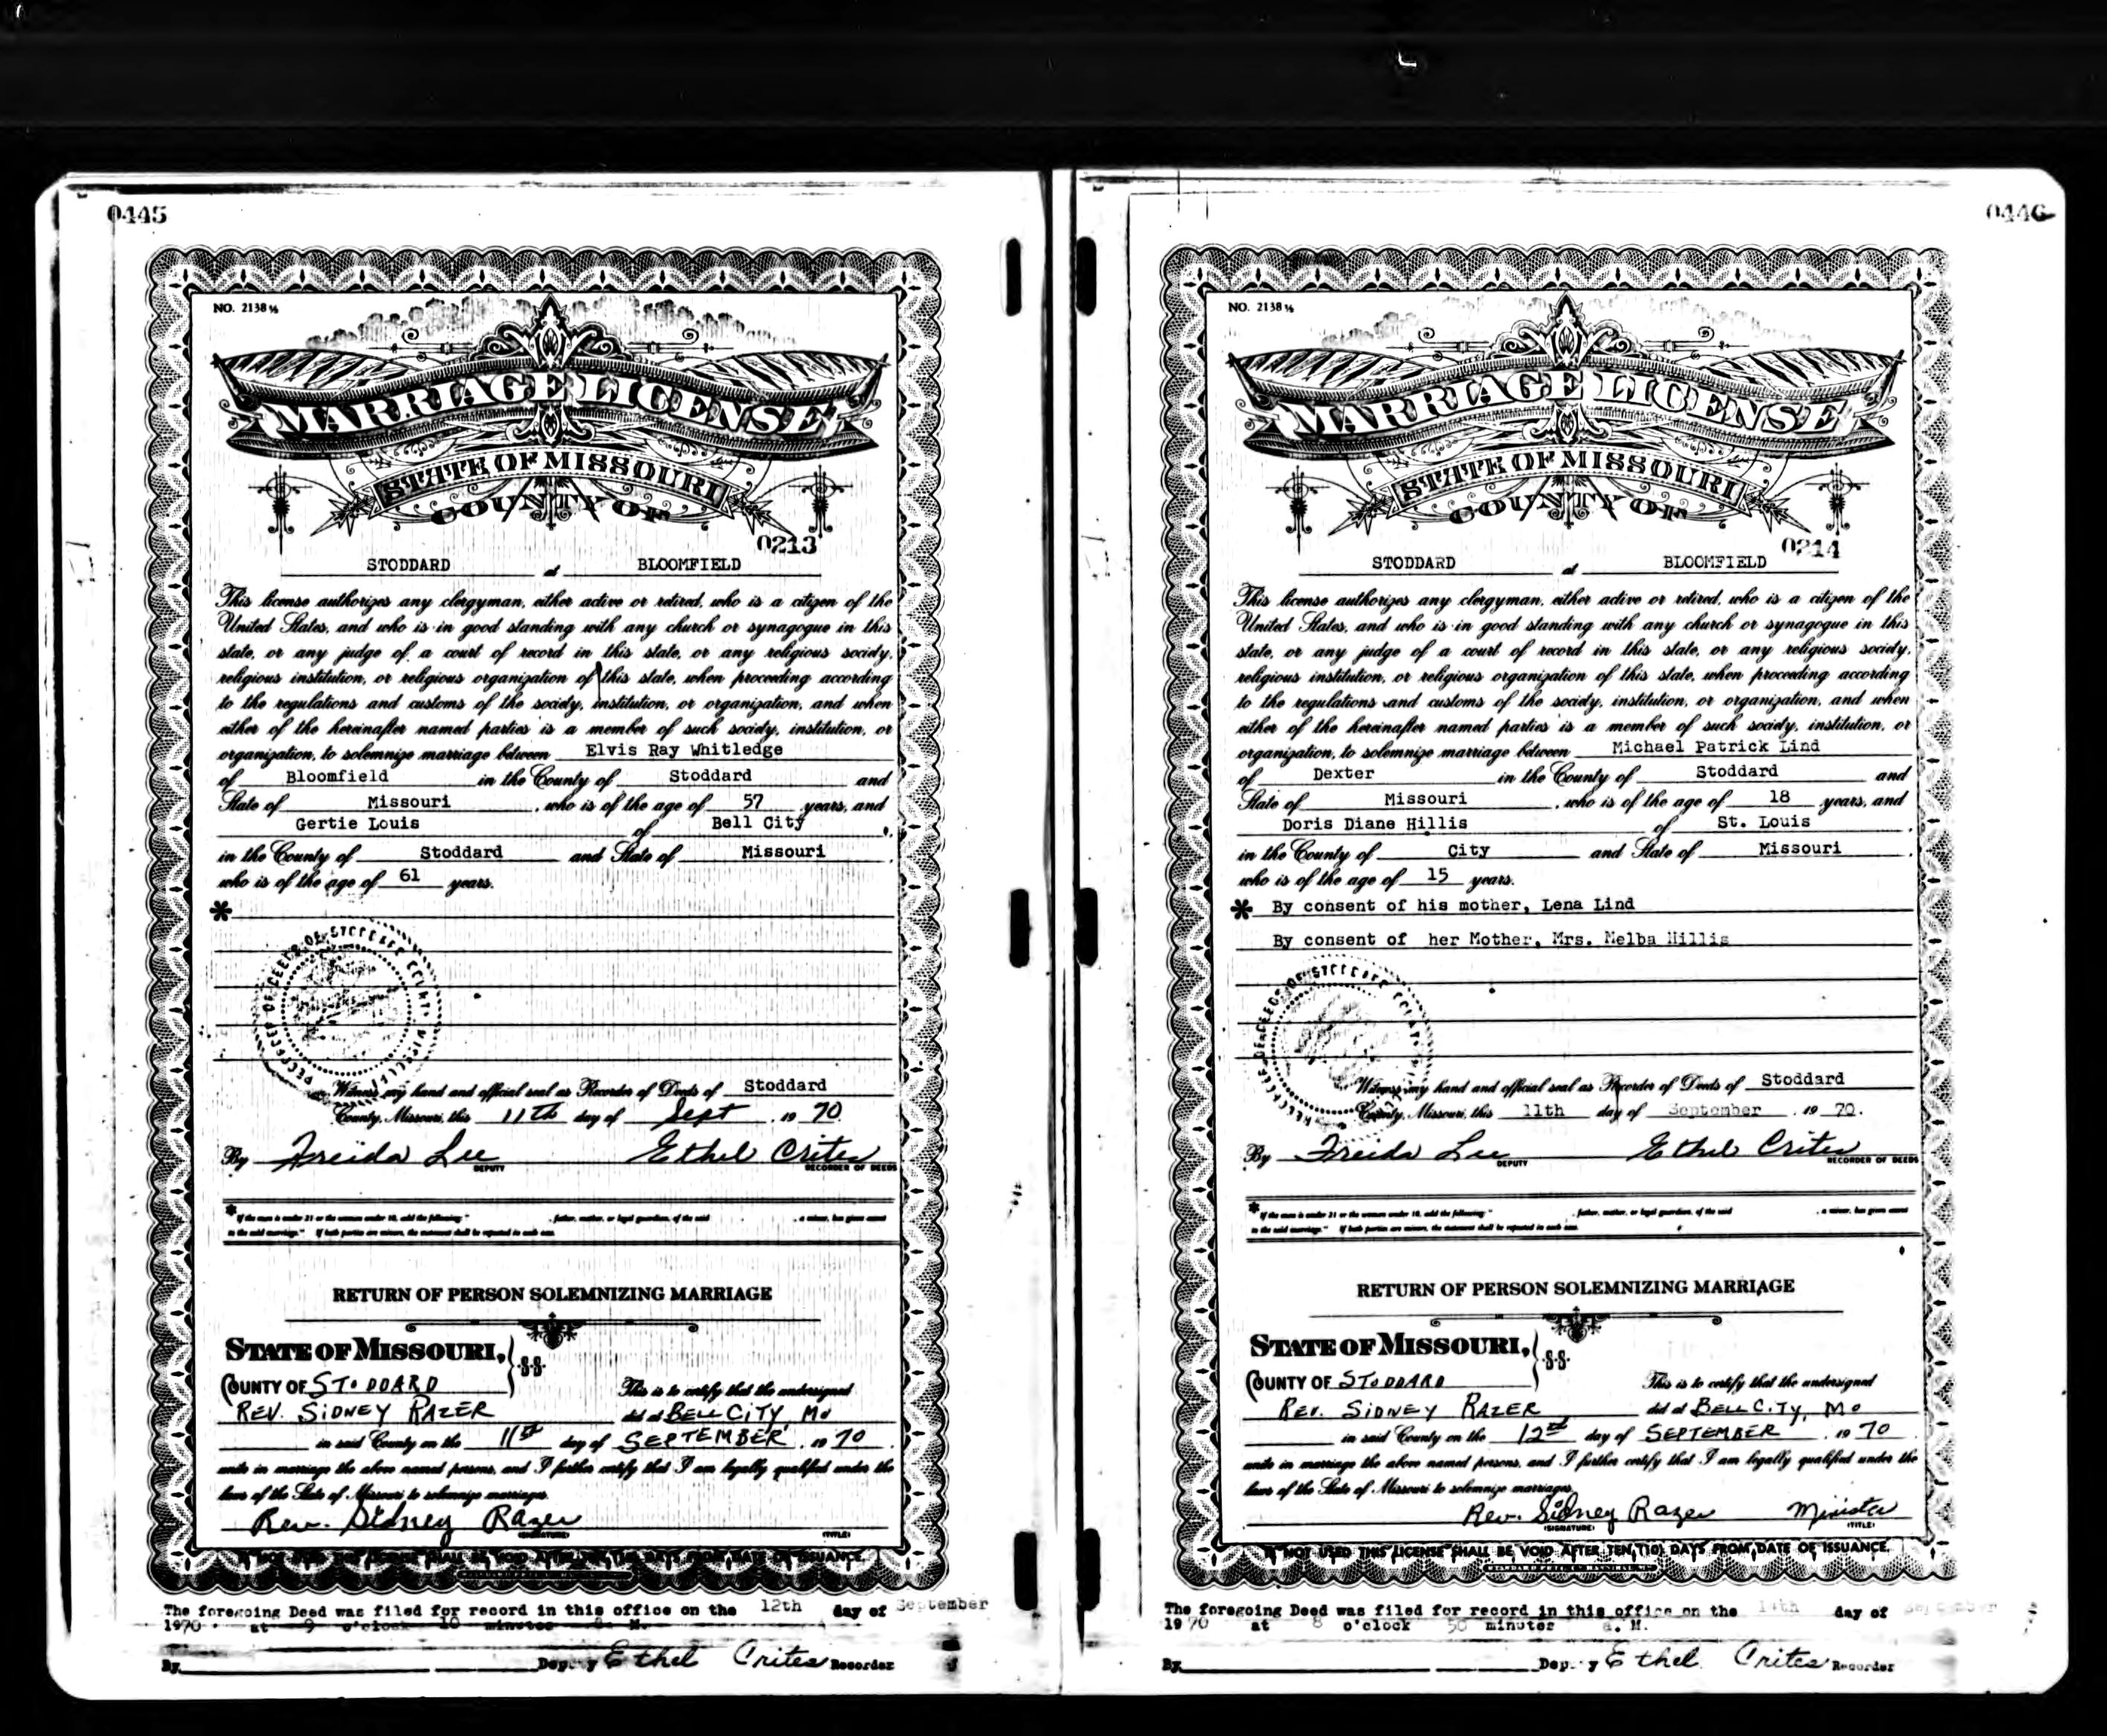 0445
NO. 2138½
MARRIAGE LICENSE
STATE OF MISSOURI
COUNTY OF
0213
STODDARD at BLOOMFIELD
This license authorizes any clergyman, either active or retired, who is a citizen of the
United States, and who is in good standing with any church or synagogue in this
state, or any judge of a court of record in this state, or any religious society,
religious institution, or religious organization of this state, when proceeding according
to the regulations and customs of the society, institution, or organization, and when
either of the hereinafter named parties is a member of such society, institution, or
organization, to solemnize marriage between Elvis Ray Whitledge
of Bloomfield in the County of Stoddard and
State of Missouri, who is of the age of 57 years, and
Gertie Louis of Bell City,
in the County of Stoddard and State of Missouri,
who is of the age of 61 years.
*
Witness my hand and official seal as Recorder of Deeds of Stoddard
County, Missouri, this 11th day of Sept, 19 70
By Freida Lee Ethel Crites
DEPUTY RECORDER OF DEEDS
* If the man is under 21 or the woman under 18, add the following: " , father, mother, or legal guardian, of the said , a minor, has given consent
to the said marriage." If both parties are minors, the statement shall be repeated in each case.
RETURN OF PERSON SOLEMNIZING MARRIAGE
STATE OF MISSOURI, } SS.
COUNTY OF STODDARD This is to certify that the undersigned
REV. SIDNEY RAZER did at BELL CITY, Mo
in said County on the 11st day of SEPTEMBER, 19 70
unite in marriage the above named persons, and I further certify that I am legally qualified under the
laws of the State of Missouri to solemnize marriages.
Rev. Sidney Razer
(SIGNATURE) (TITLE)
IF NOT USED THIS LICENSE SHALL BE VOID AFTER TEN (10) DAYS FROM DATE OF ISSUANCE.
The foregoing Deed was filed for record in this office on the 12th day of September
1970 at 9 o'clock 10 minutes M.
By Deputy Ethel Crites Recorder
0446
NO. 2138½
MARRIAGE LICENSE
STATE OF MISSOURI
COUNTY OF
0214
STODDARD at BLOOMFIELD
This license authorizes any clergyman, either active or retired, who is a citizen of the
United States, and who is in good standing with any church or synagogue in this
state, or any judge of a court of record in this state, or any religious society,
religious institution, or religious organization of this state, when proceeding according
to the regulations and customs of the society, institution, or organization, and when
either of the hereinafter named parties is a member of such society, institution, or
organization, to solemnize marriage between Michael Patrick Lind
of Dexter in the County of Stoddard and
State of Missouri, who is of the age of 18 years, and
Doris Diane Hillis of St. Louis,
in the County of City and State of Missouri,
who is of the age of 15 years.
* By consent of his mother, Lena Lind
By consent of her Mother, Mrs. Melba Hillis
Witness my hand and official seal as Recorder of Deeds of Stoddard
County, Missouri, this 11th day of September, 19 70.
By Freida Lee Ethel Crites
DEPUTY RECORDER OF DEEDS
* If the man is under 21 or the woman under 18, add the following: " , father, mother, or legal guardian, of the said , a minor, has given consent
to the said marriage." If both parties are minors, the statement shall be repeated in each case.
RETURN OF PERSON SOLEMNIZING MARRIAGE
STATE OF MISSOURI, } SS.
COUNTY OF STODDARD This is to certify that the undersigned
REV. SIDNEY RAZER did at BELL CITY, Mo
in said County on the 12nd day of SEPTEMBER, 19 70
unite in marriage the above named persons, and I further certify that I am legally qualified under the
laws of the State of Missouri to solemnize marriages.
Rev. Sidney Razer Minister
(SIGNATURE) (TITLE)
IF NOT USED THIS LICENSE SHALL BE VOID AFTER TEN (10) DAYS FROM DATE OF ISSUANCE.
The foregoing Deed was filed for record in this office on the 14th day of September
1970 at 8 o'clock 50 minutes a. M.
By Deputy Ethel Crites Recorder